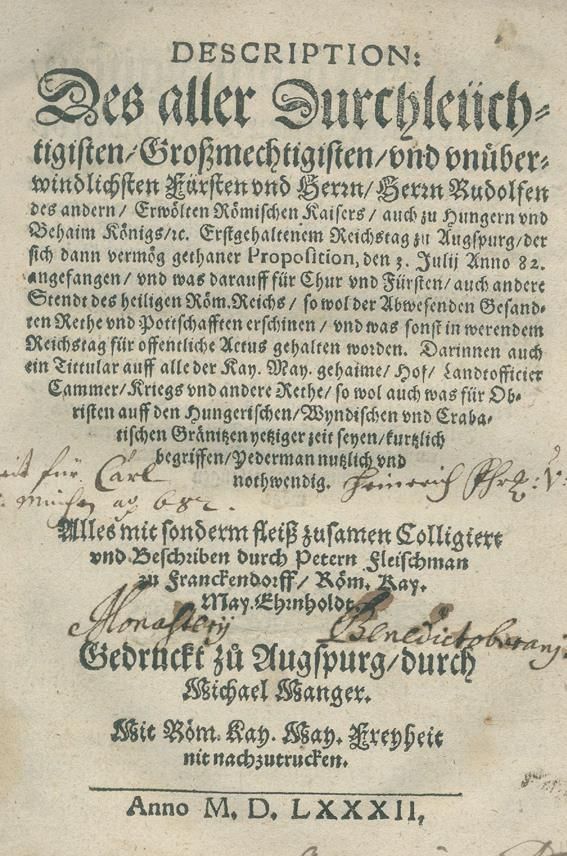 DESCRIPTION:
Des aller Durchleüch-
tigisten/Großmechtigisten/vnd vnüber-
windlichsten Fürsten vnd Herrn/ Herrn Rudolfen
des andern/ Erwölten Römischen Kaisers/ auch zu Hungern vnd
Behaim Königs/ꝛc. Erstgehaltenem Reichstag zu Augspurg/der
sich dann vermög gethaner Proposition, den 3. Julij Anno 82.
angefangen/ vnd was darauff für Chur vnd Fürsten/ auch andere
Stendt des heiligen Röm.Reichs/ so wol der Abwesenden Gesand-
ten Rethe vnd Pottschafften erschinen/ vnd was sonst in werendem
Reichstag für offentliche Actus gehalten worden. Darinnen auch
ein Tittular auff alle der Kay. May. gehaime/ Hof/ Landtofficier
Cammer/Kriegs vnd andere Rethe/ so wol auch was für Ob-
risten auff den Hungerischen/Wyndischen vnd Craba-
tischen Gränitzen yetziger zeit seyen/kurtzlich
begriffen/Yederman nutzlich vnd
nothwendig.
für Carl
Heinerich
Alles mit sonderm fleiß zusamen Colligiert
vnd Beschriben durch Petern Fleischman
zu Franckendorff/ Röm. Kay.
May.Ehrnholdt.
Monasterij Benedictoburanj
Gedruckt zů Augspurg/durch
Michael Manger.
Mit Röm. Kay. May. Freyheit
nit nachzutrucken.
Anno M. D. LXXXII.